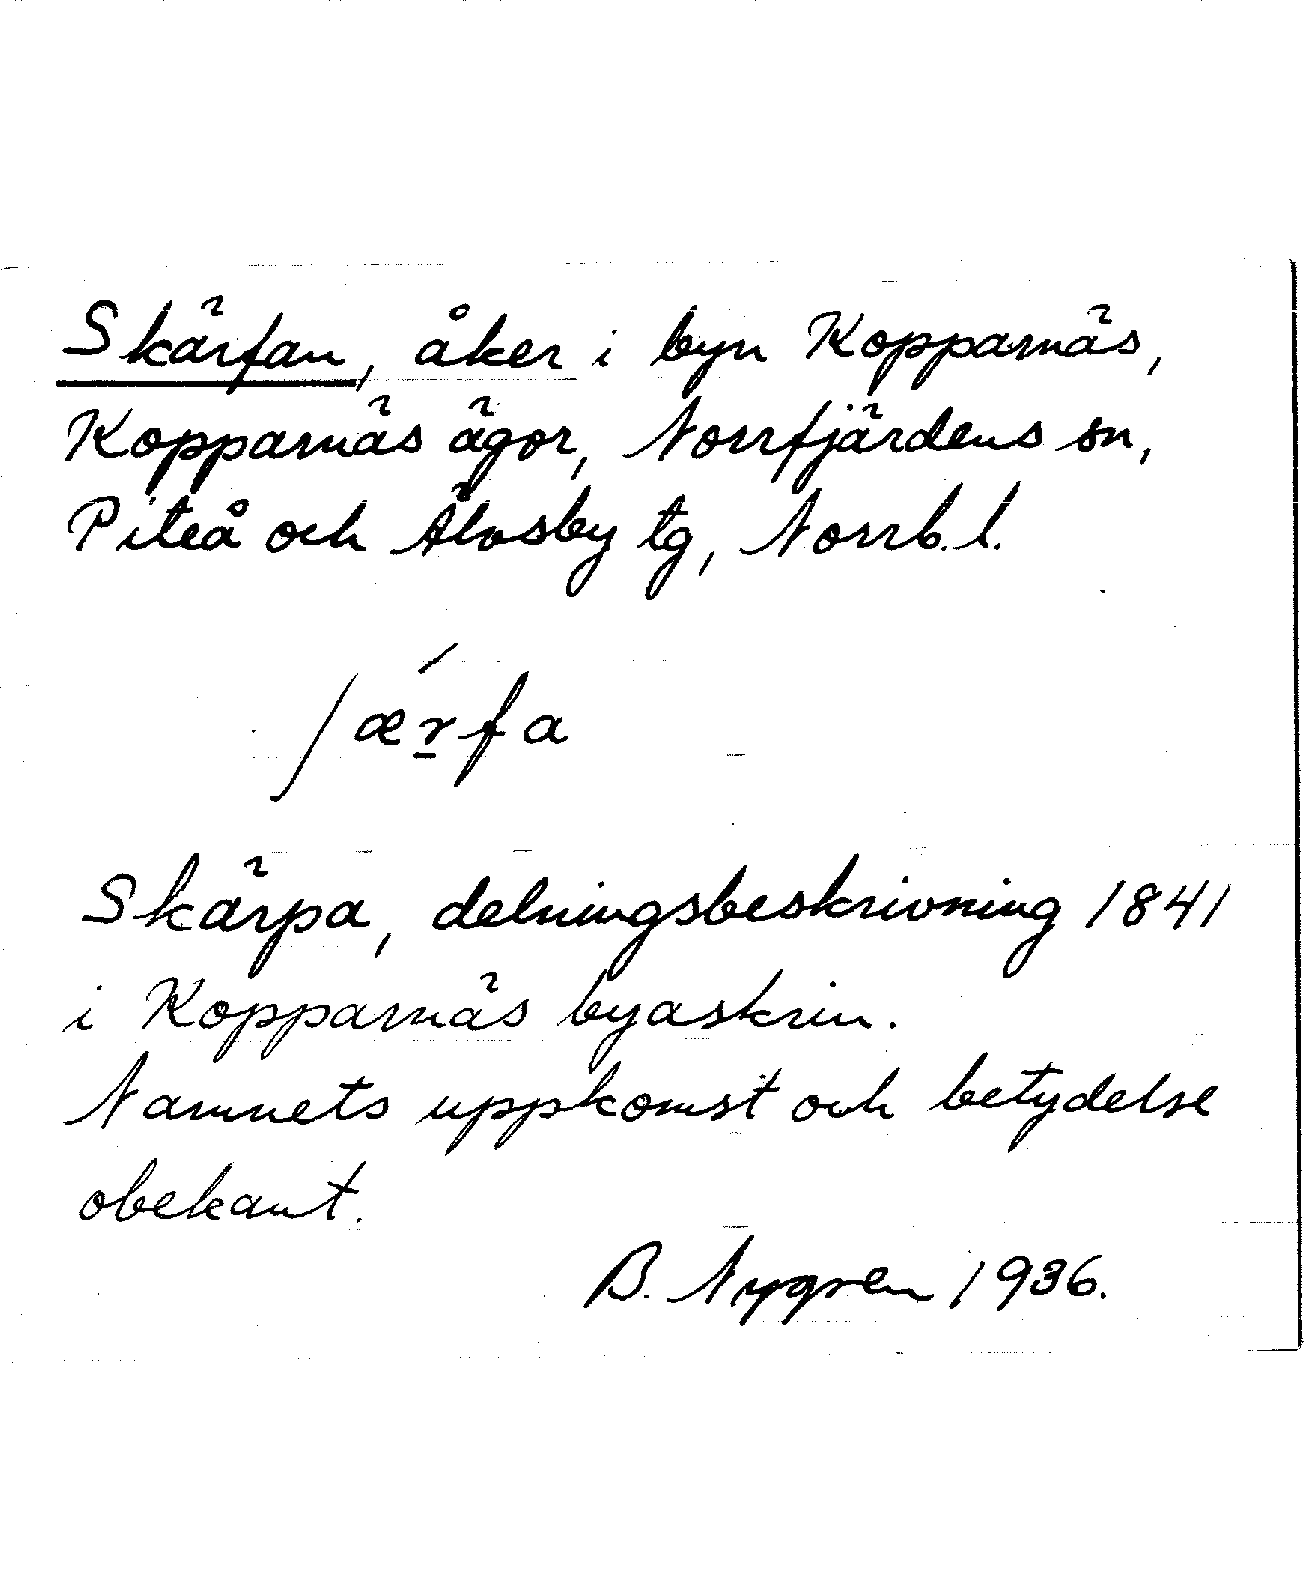 Skärfan, åker i byn Kopparnäs,
Kopparnäs ägor, Norrfjärdens sn,
Piteå och Älvsby tg, Norrb. l.
ʃǽr̠fa
Skärpa, delningsbeskrivning 1841
i Kopparnäs byaskrin.
Namnets uppkomst och betydelse
obekant.
B. Nygren 1936.